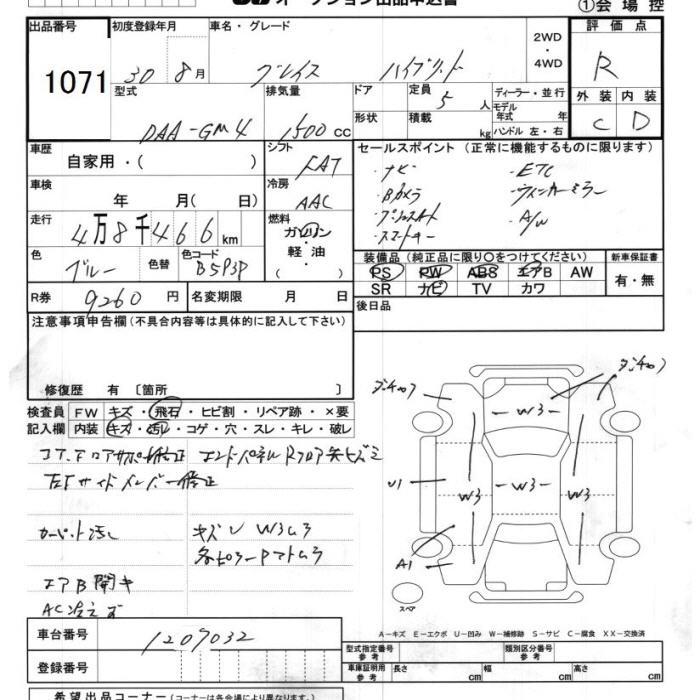 オークション出品申込書
①会場控
出品番号 初度登録年月 車名・グレード 評価点
1071 30年8月 グレイス ハイブリット 2WD・4WD R
型式 排気量 ドア 定員 ディーラー・並行 外装 内装
DAA-GM4 1500cc 5人 モデル年式 年 C D
形状 積載 kg ハンドル 左・右
車歴 シフト セールスポイント (正常に機能するものに限ります)
自家用・( ) FAT
・ナビ ・ETC
車検 冷房 ・Bカメラ ・ウィンカーミラー
年 月( 日) AAC ・プッシュスタート ・A/W
走行 燃料 ・スマートキー
4万8千466km ガソリン・軽油
色 色替 色コード 装備品 (純正品に限り○をつけてください) 新車保証書
ブルー B593P PS PW ABS エアB AW 有・無
SR ナビ TV カワ
R券 9260円 名変期限 月 日 後日品
注意事項申告欄(不具合内容等は具体的に記入して下さい)
修復歴 有 〔箇所 〕
検査員記入欄 FW キズ・飛石・ヒビ割・リペア跡・×要
内装 キズ・汚れ・コゲ・穴・スレ・キレ・破レ
エンドパネルRフロア
左Fサイドメンバー修正
カーペット汚れ キズU W3ムラ
各ピラー
エアB開キ
AC冷えず
W3
W3 W3 W3
U1
A1
スペア
A−キズ E−エクボ U−凹み W−補修跡 S−サビ C−腐食 XX−交換済
車台番号 1209032
型式指定番号 参考 類別区分番号 参考
登録番号
車庫証明用 参考 長さ cm 幅 cm 高さ cm
希望出品コーナー(コーナーは各会場により異なります)